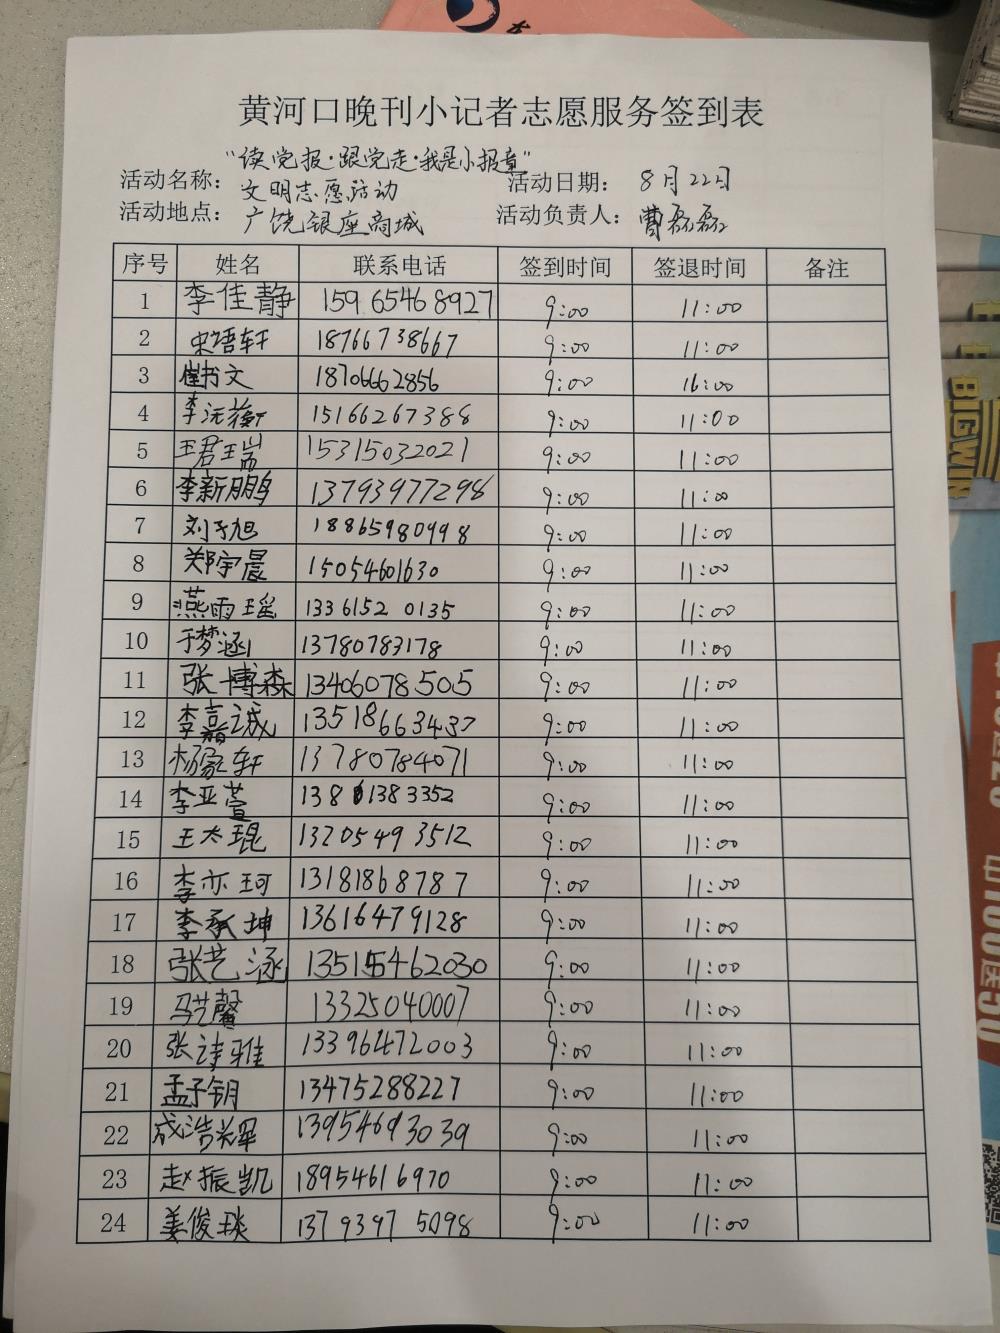 黄河口晚刊小记者志愿服务签到表
"读党报·跟党走·我是小报童"
活动名称： 文明志愿活动 活动日期： 8月22日
活动地点： 广饶银座商城 活动负责人： 曹磊磊
序号 姓名 联系电话 签到时间 签退时间 备注
1 李佳静 15965468927 9:00 11:00
2 史语轩 18766738667 9:00 11:00
3 崔书文 18706662856 9:00 16:00
4 李沅蘅 15166267388 9:00 11:00
5 王君瑞 15315032021 9:00 11:00
6 李新鹏 13793977298 9:00 11:00
7 刘子旭 18865980998 9:00 11:00
8 郑宇晨 15054601630 9:00 11:00
9 燕雨瑶 1336152 0135 9:00 11:00
10 于梦涵 13780783178 9:00 11:00
11 张博森 13406078505 9:00 11:00
12 李嘉诚 13518663437 9:00 11:00
13 杨家轩 13780784071 9:00 11:00
14 李亚萱 1381383352 9:00 11:00
15 王太琨 13205493512 9:00 11:00
16 李亦珂 13181868787 9:00 11:00
17 李承坤 13616479128 9:00 11:00
18 张艺涵 13515462030 9:00 11:00
19 马艺馨 13325040007 9:00 11:00
20 张诗雅 13396472003 9:00 11:00
21 孟子钥 13475288227 9:00 11:00
22 成浩辉 13954693039 9:00 11:00
23 赵振凯 18954616970 9:00 11:00
24 姜俊琰 1379397 5098 9:00 11:00
BIGWIN